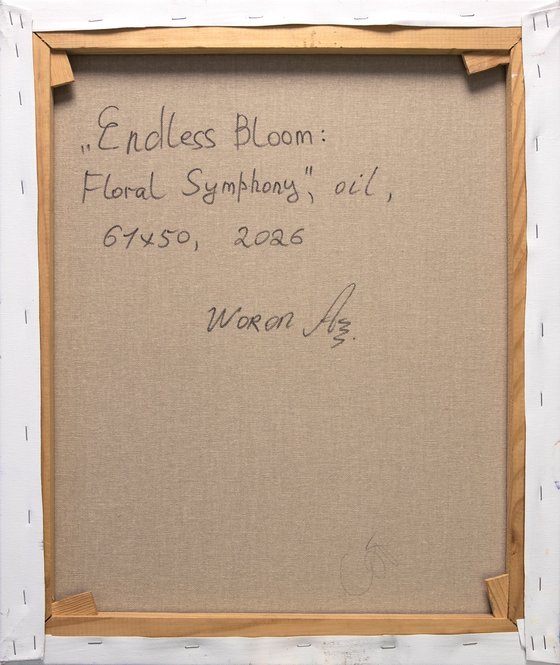 „Endless Bloom:
Floral Symphony", oil,
61x50, 2026
Woron